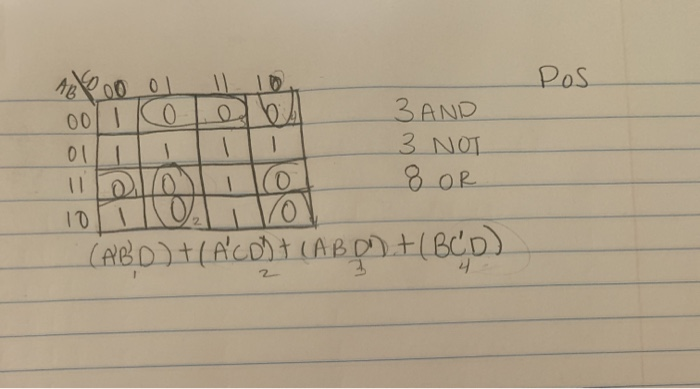 PoS
AB\CD 00 01 11 10
00 1 0 0 0
3 AND
01 1 1 1 1
3 NOT
11 0 0 1 0
8 OR
10 1 0 1 0
(A'B'D) + (A'CD') + (ABD') + (BC'D)
1 2 3 4